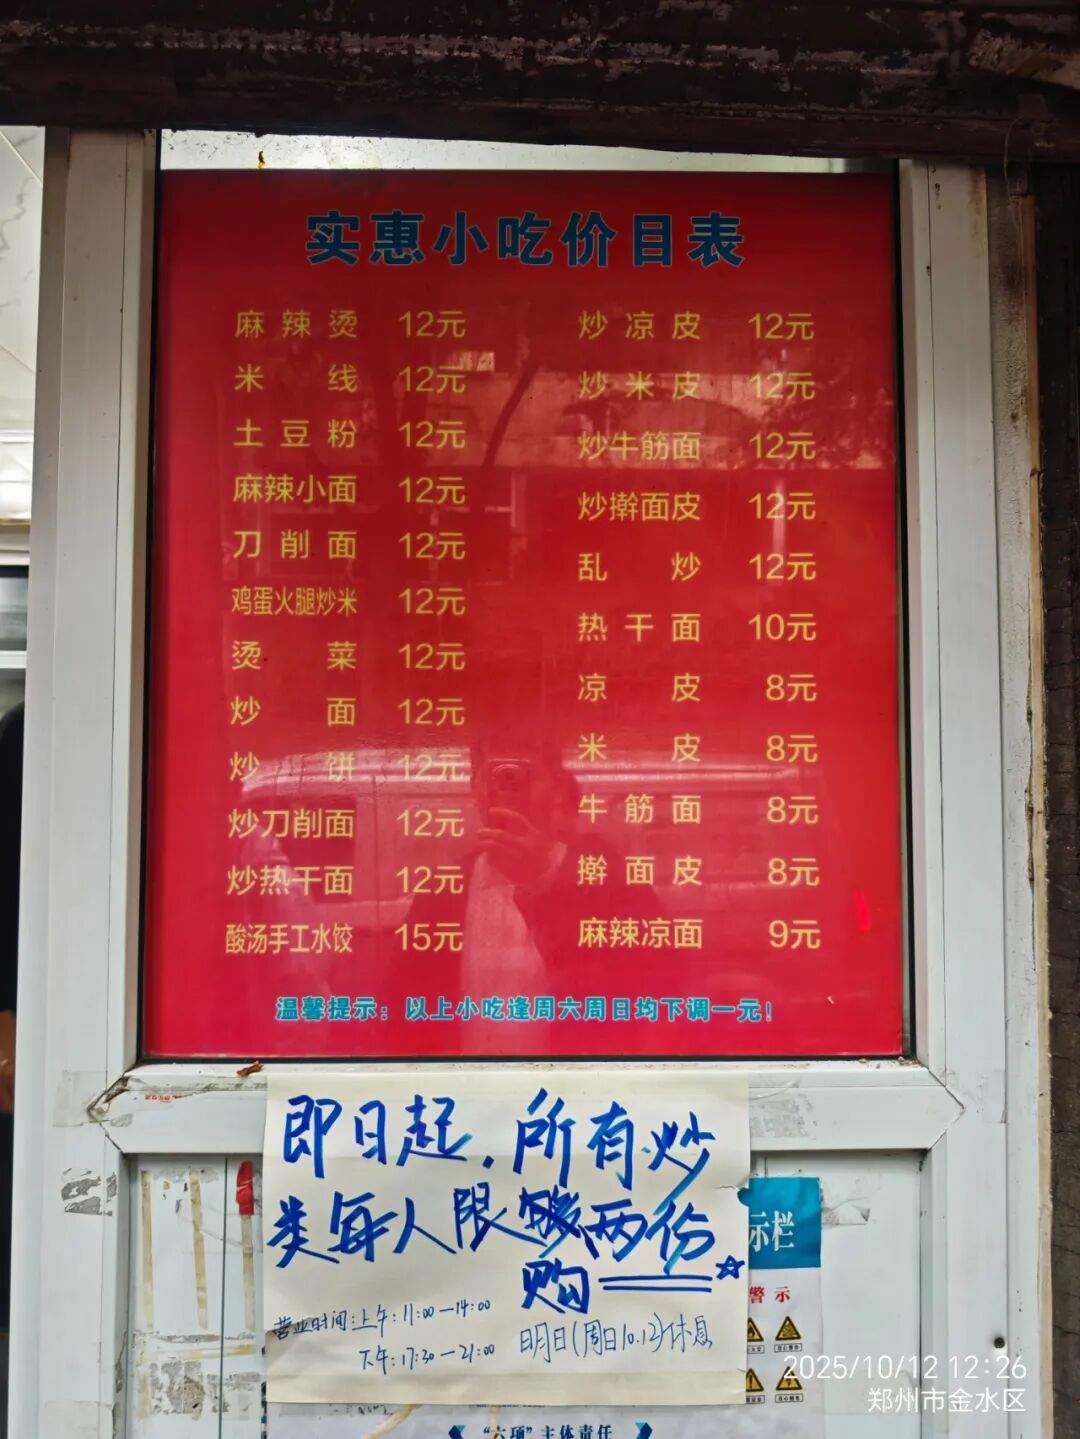 实惠小吃价目表
麻辣烫 12元
米线 12元
土豆粉 12元
麻辣小面 12元
刀削面 12元
鸡蛋火腿炒米 12元
烫菜 12元
炒面 12元
炒饼 12元
炒刀削面 12元
炒热干面 12元
酸汤手工水饺 15元
炒凉皮 12元
炒米皮 12元
炒牛筋面 12元
炒擀面皮 12元
乱炒 12元
热干面 10元
凉皮 8元
米皮 8元
牛筋面 8元
擀面皮 8元
麻辣凉面 9元
温馨提示：以上小吃逢周六周日均下调一元！
即日起，所有炒
类每人限两份
购
营业时间：上午：11:00—14:00
下午：17:30—21:00
明日(周日10.12)休息
示栏
警示
"六项"主体责任
2025/10/12 12:26
郑州市金水区